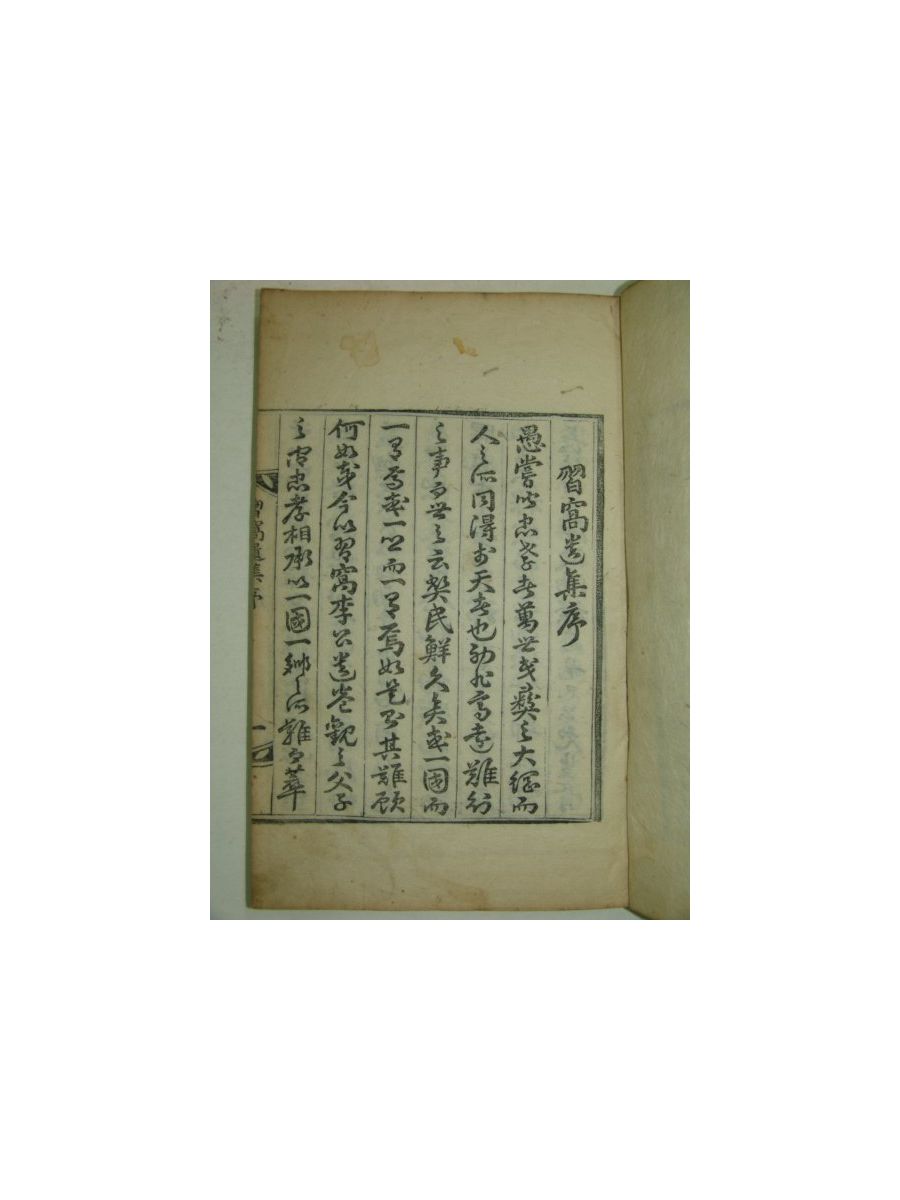 習窩遺集序
愚嘗以忠孝者萬世民彝之大綱而
人之所同得於天者也初非高遠難行
之事而世之云契民鮮久矣或一國而
一有焉或一心而一有焉如是即其難顧
何如哉今以習窩李公遺卷觀之父子
之間忠孝相承以一國一鄉之所難而萃
習窩遺集序
一